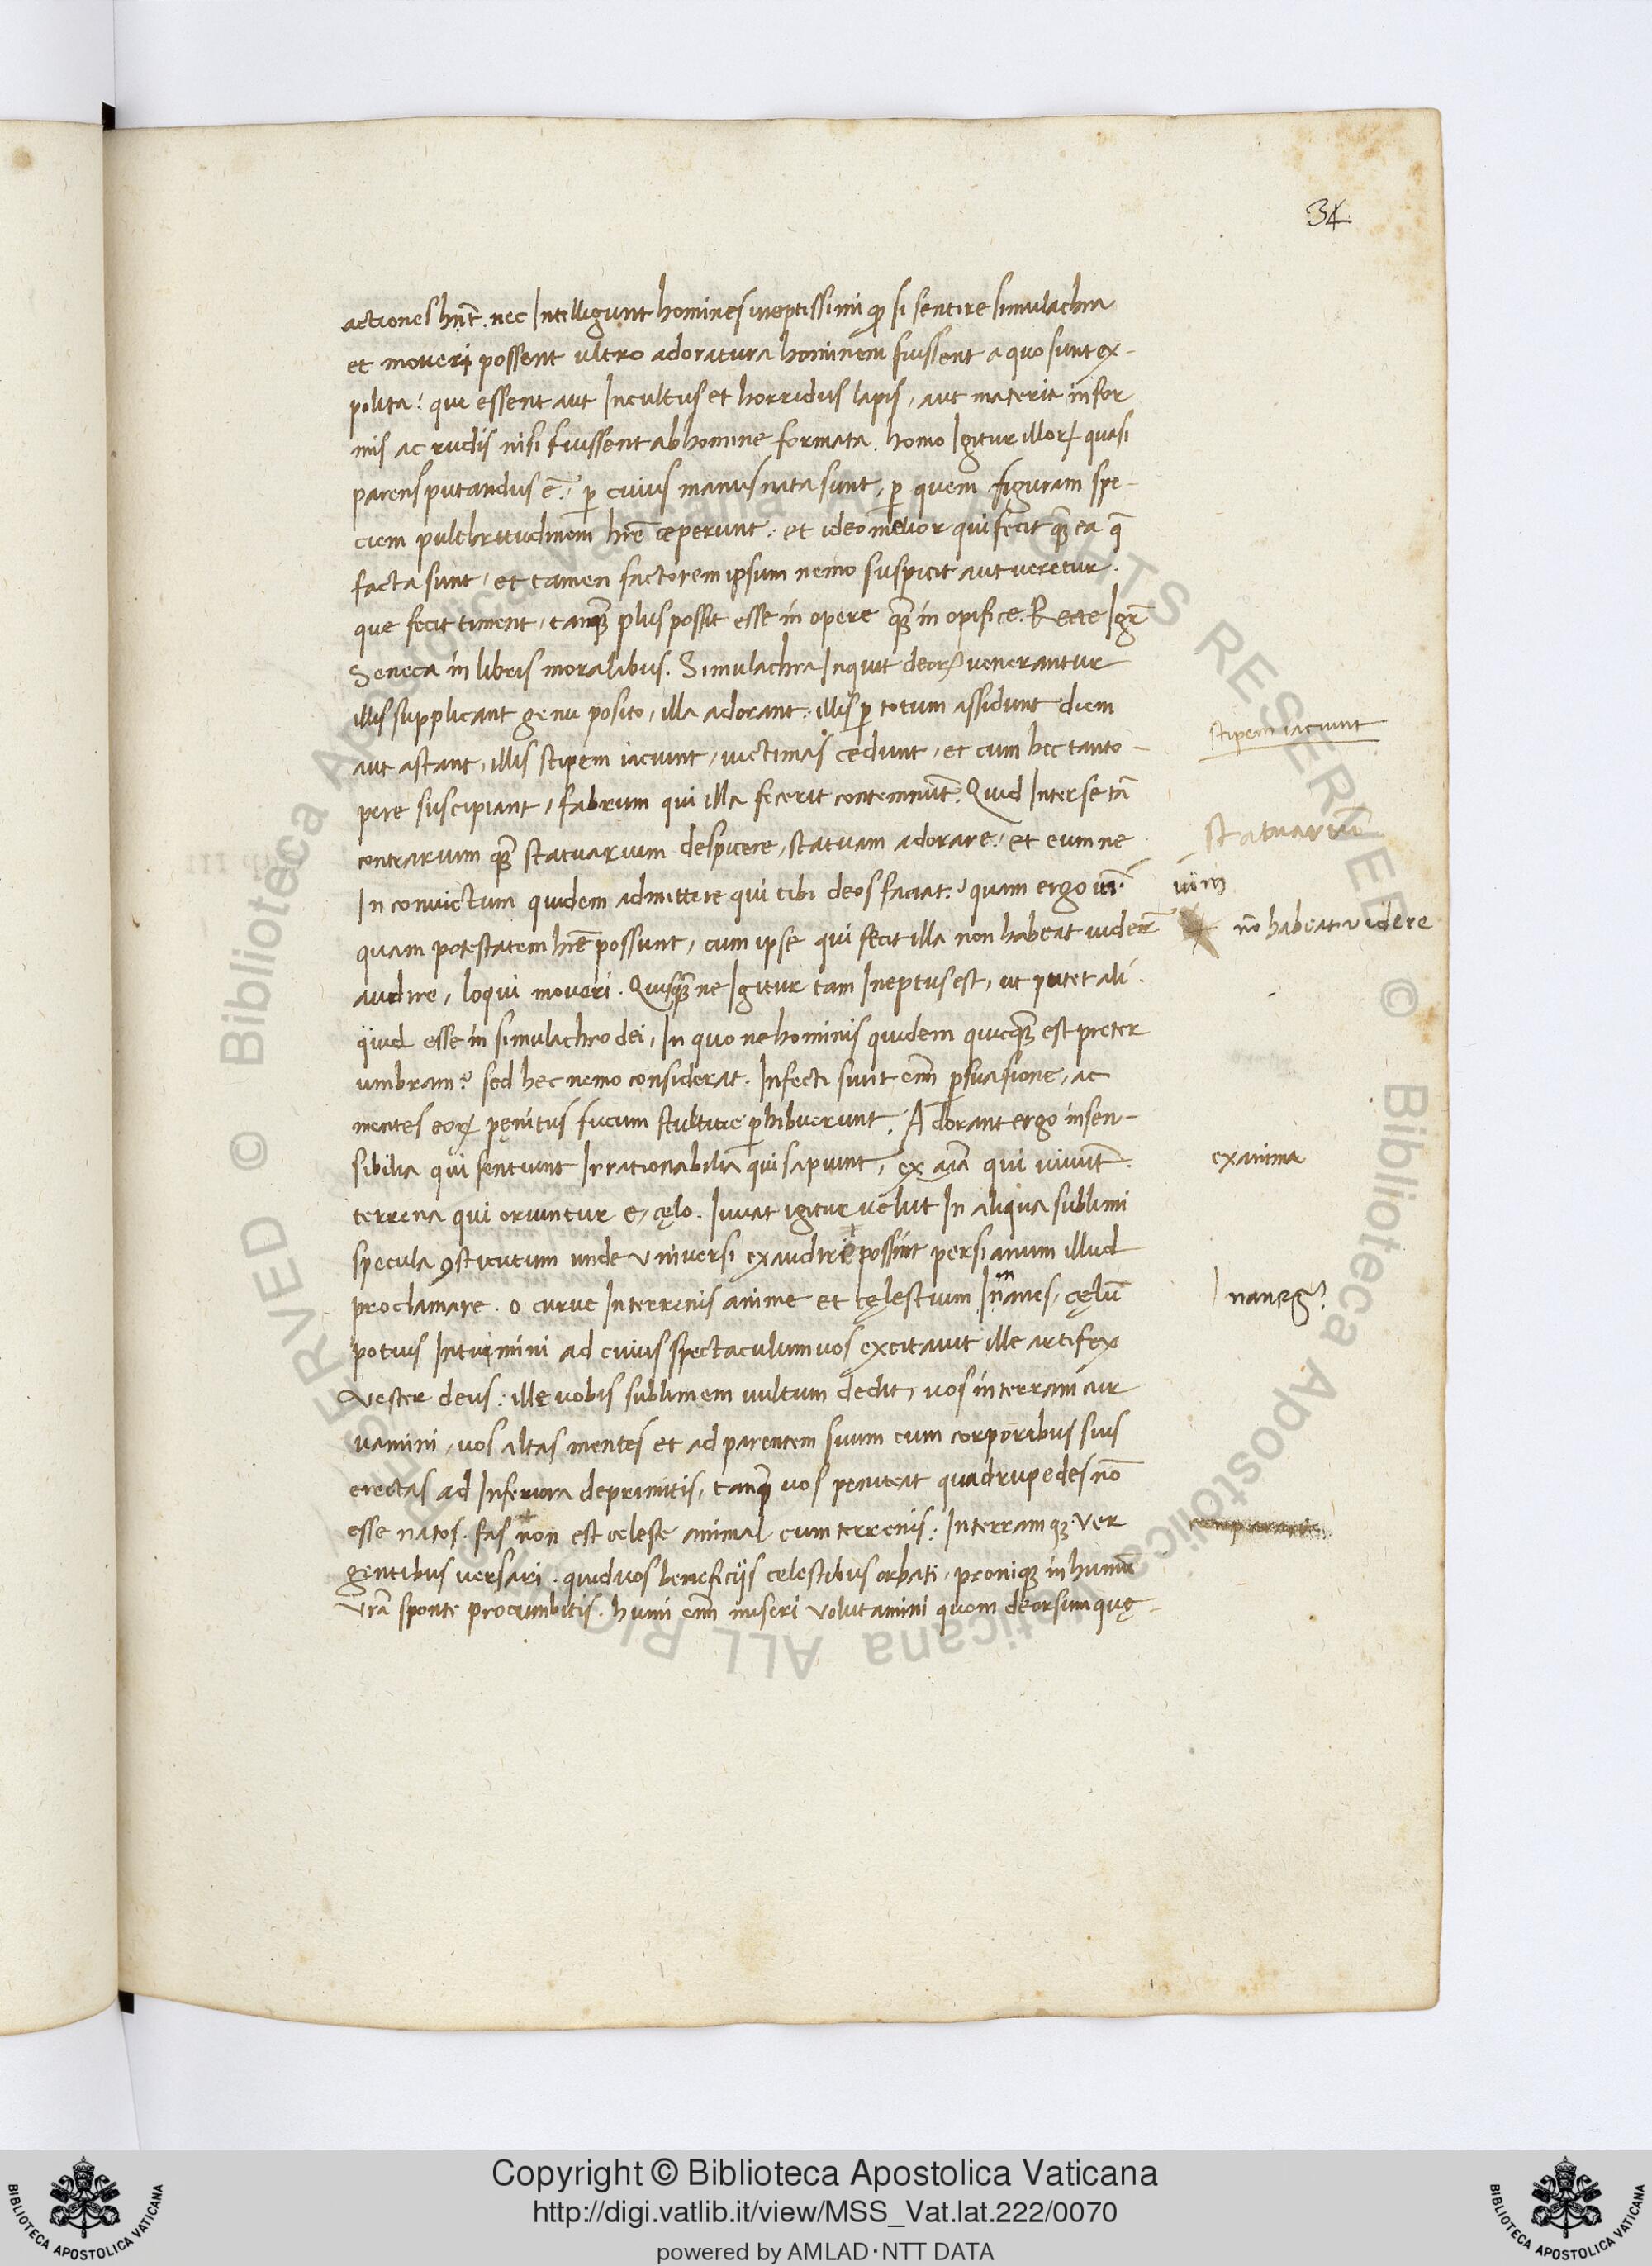 34
actiones hn̄t. nec Intelligunt homines ineptissimi ꝙ si sentire simulachra
et moveri possent ultro adoratura hominem fuissent a quo sunt ex-
polita: que essent aut Incultus et horridus lapis, aut materia infor
mis ac rudis nisi fuissent ab homine formata. homo Igitur illoꝝ quasi
parens putandus ē: ꝑ cuius manus nata sunt, ꝑ quem figuram spe-
ciem pulchritudinem hr̄e ceperunt: et ideo melior qui fecit qꝫ ea q̄
facta sunt, et tamen factorem ipsum nemo suspicit aut veretur.
que fecit timent, tanqꝫ plus possit esse in opere qꝫ in opifice. Recte Igr̄
Seneca in libris moralibus. Simulachra Inquit deoꝝ venerantur
illis supplicant genu posito, illa adorant: illis ꝑ totum assidunt diem
aut astant, illis stipem iaciunt, victimas cedunt, et cum hec tanto-
stipem iaciunt
pere suscipiant, fabrum qui illa fecerit contemnūt. Quid Inter se tā
contrarium qꝫ statuarium despicere, statuam adorare: et eum ne
statuariū
In convictum quidem admittere qui tibi deos faciat? quam ergo vī
vim
quam potestatem hr̄e possunt, cum ipse qui fecit illa non habeat videre
nō habeat videre
audire, loqui moveri. Quisqꝫ ne Igitur tam Ineptus est, ut putet ali
quid esse in simulachro dei, In quo ne hominis quidem quicqꝫ est preter
umbram? sed hec nemo considerat. Infecti sunt em̄ ꝑsuasione, ac
mentes eoꝝ penitus fucum stultitie ꝑbibuerunt. Adorant ergo insen-
sibilia qui sentiunt Irrationabilia qui sapiunt, ex aīa qui vivūt.
exanima
terrena qui oriuntur e, cęlo. Iuvat igitur velut In aliqua sublimi
specula ꝯstitutum unde universi exaudire possint persianum illud
proclamare. o curve In terrenis anime et cęlestium Inanes, cęlū
Inaneg?
potius Intuimini ad cuius spectaculum vos excitavit ille artifex
vester deus: ille vobis sublimem vultum dedit, vos in terram cur
vamini, vos altas mentes et ad parentem suum cum corporibus suis
erectas ad Inferiora deprimitis, tanqꝫ vos peniteat quadrupedes nō
esse natos. fas non est celeste animal cum terrenis: In terramqꝫ ver
gentibus versari. quid vos beneficiis celestibus orbati, proniqꝫ in humū
vr̄a sponte procumbitis. humi em̄ miseri volutamini quom deorsum quę-
Copyright © Biblioteca Apostolica Vaticana
http://digi.vatlib.it/view/MSS_Vat.lat.222/0070
powered by AMLAD·NTT DATA
BIBLIOTECA APOSTOLICA VATICANA
BIBLIOTECA APOSTOLICA VATICANA